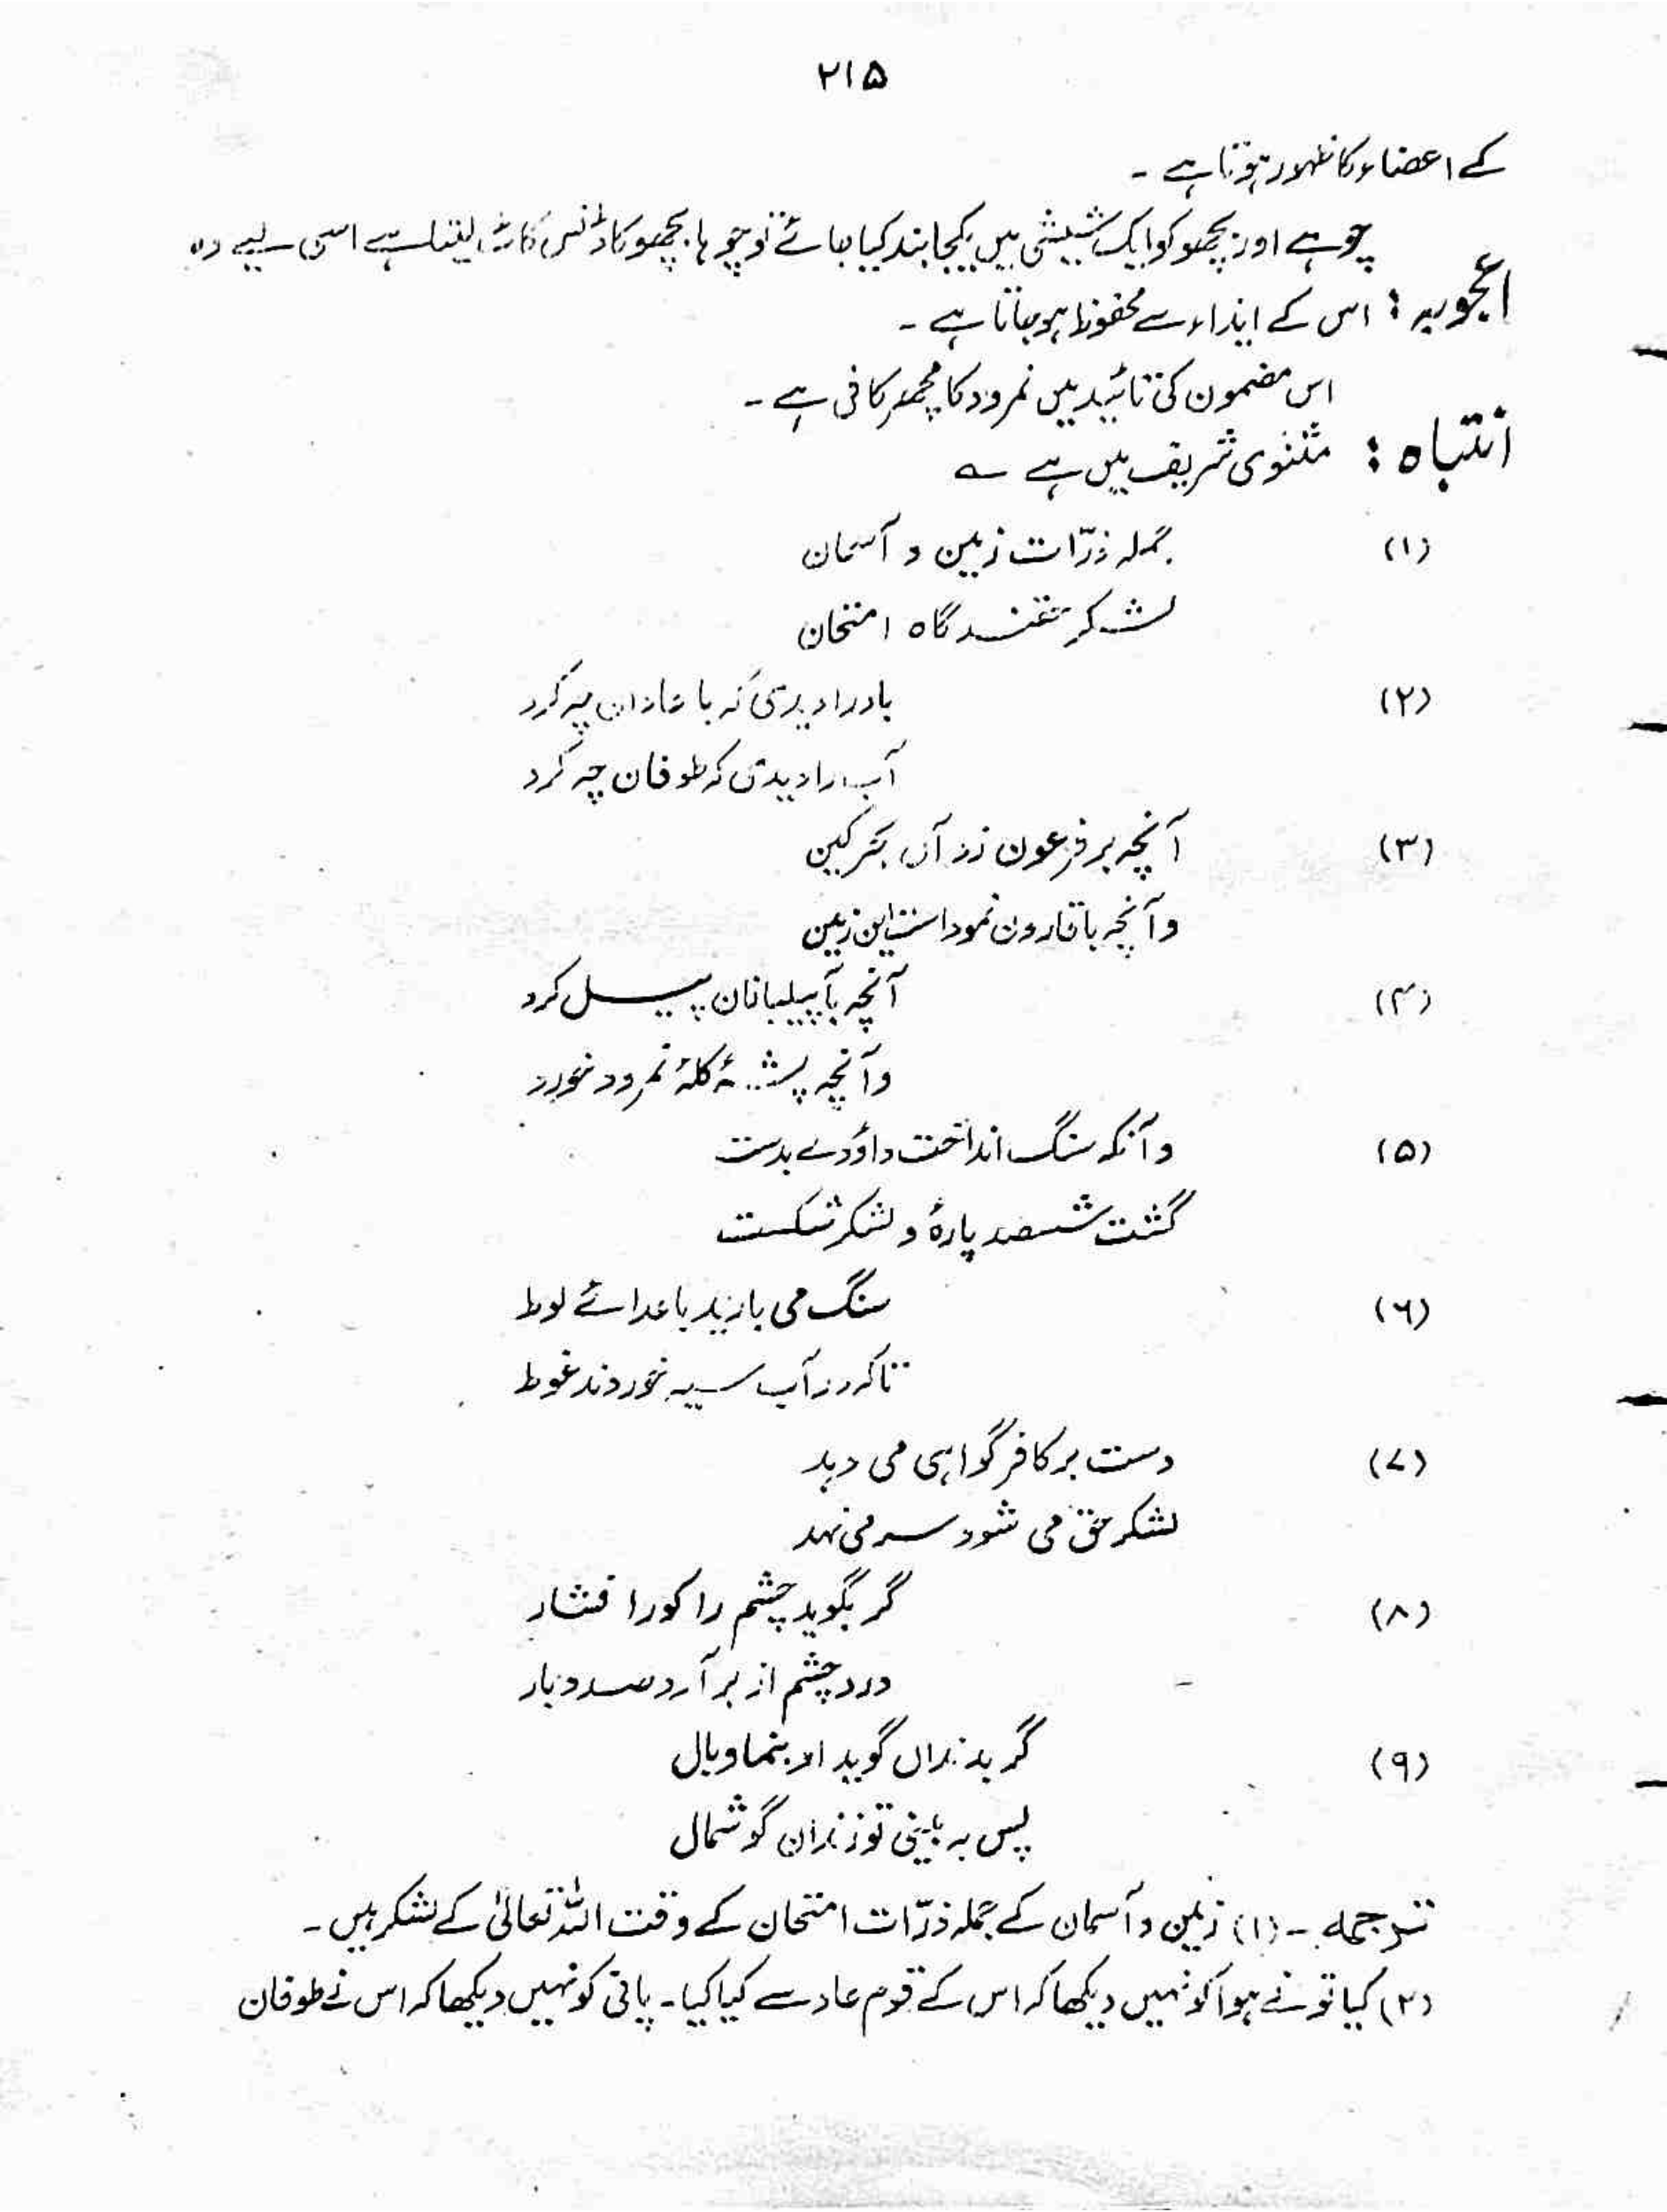 ۲۱۵
کے اعضاء کا ظہور ہوتا ہے ۔
چوہے اور بچھو کو ایک شیشی میں یکجا بند کیا جائے تو چوہا بچھو کا ڈنس کاٹ لیتا ہے اسی لیے وہ
اعجوبہ : اس کے ایذاء سے محفوظ ہو جاتا ہے ۔
اس مضمون کی تائید میں نمرود کا مچھر کافی ہے ۔
انتباہ : مثنوی شریف میں ہے ؎
(۱) جملہ ذرّات زمین و آسمان
لشکر حقند گاہ امتحان
(۲) باد را دیدی کہ با عادان چہ کرد
آب را دیدی کہ طوفان چہ کرد
(۳) آنچہ بر فرعون زد آں بحر کین
و آنچہ با قارون نمود است این زمین
(۴) آنچہ با پیلبانان پیل کرد
و آنچہ پشہ کلۂ نمرود خورد
(۵) و آنکہ سنگ انداخت داؤدے بدست
گشت شصد پارۂ و لشکر شکست
(۶) سنگ می بارید با عدائے لوط
تا کہ در آب سیہ خوردند غوط
(۷) دست بر کافر گواہی می دہد
لشکر حق می شود سر می نہد
(۸) گر بگوید چشم را کو را فشار
درد چشم از بر آرد صد دبار
(۹) گر بدنداں گوید او بنما وبال
پس بہ بینی تو ز دندان گوشمال
ترجمہ ۔ (۱) زمین و آسمان کے جملہ ذرّات امتحان کے وقت اللہ تعالیٰ کے لشکر ہیں ۔
(۲) کیا تو نے ہوا کو نہیں دیکھا کہ اس کے قوم عاد سے کیا کیا ۔ پانی کو نہیں دیکھا کہ اس نے طوفان